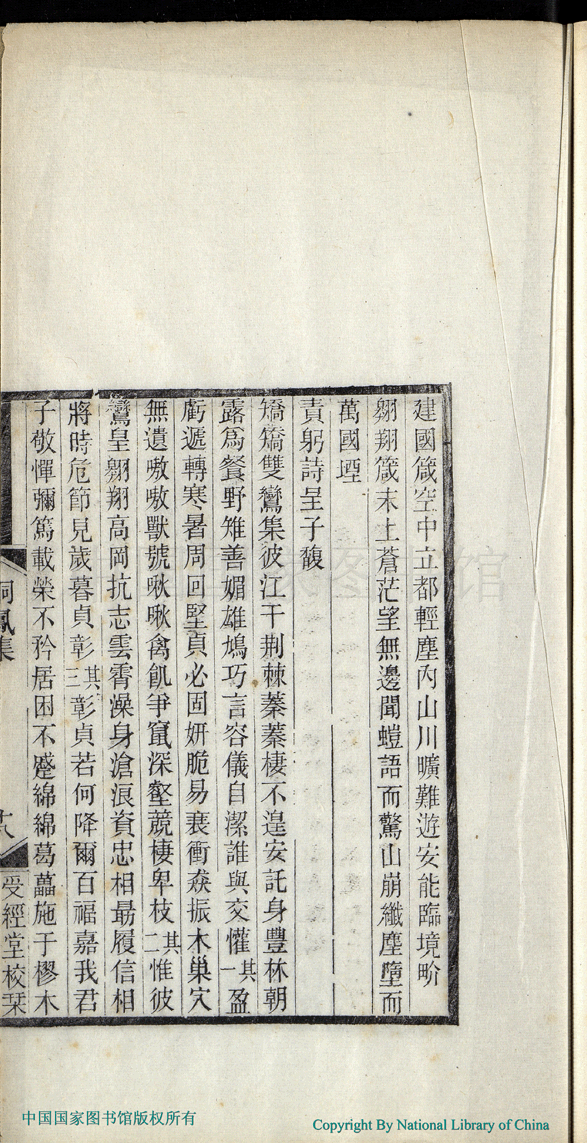 建國箴空中立都輕塵內山川曠難遊安能臨境畍
翱翔箴末上蒼茫望無邊聞螘語而驚山崩纖塵墮而
萬國堙
責躬詩呈子馥
矯矯雙鸞集彼江干荆棘蓁蓁棲不遑安託身豐林朝
露爲餐野雉善媚雄鳩巧言容儀自潔誰與交懽其一盈
虧遞轉寒暑周回堅貞必固妍脆易衰衝猋振木巢穴
無遺嗷嗷獸號啾啾禽飢爭竄深壑競棲卑枝其二惟彼
鸞皇翱翔高岡抗志雲霄澡身滄浪資忠相最履信相
將時危節見歲暮貞彰其三彰貞若何降爾百福嘉我君
子敬憚彌篤載榮不矜居困不蹙綿綿葛藟施于樛木
桐鳳集
十八
受經堂校栞
中国国家图书馆版权所有
Copyright By National Library of China